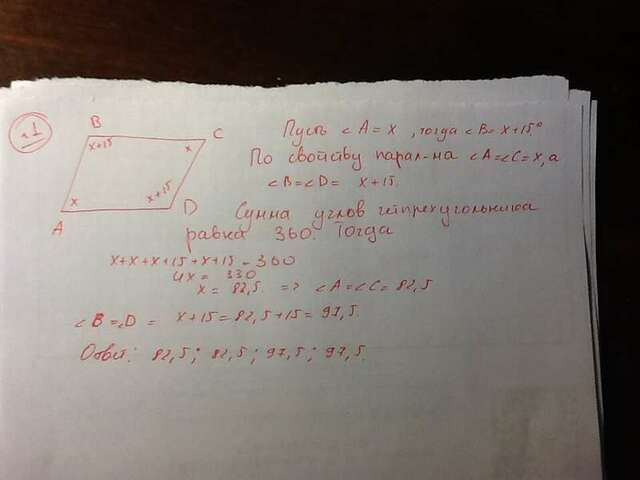 1
B
x+15
C
x
x
x+15
D
A
Пусть ∠A=x, тогда ∠B=x+15°
По свойству парал-ма ∠A=∠C=x, а
∠B=∠D= x+15.
Сумма углов четырехугольника
равна 360. Тогда
x+x+x+15+x+15=360
4x = 330
x = 82,5. => ∠A=∠C= 82,5
∠B=∠D = x+15=82,5+15=97,5.
Ответ: 82,5; 82,5; 97,5; 97,5.